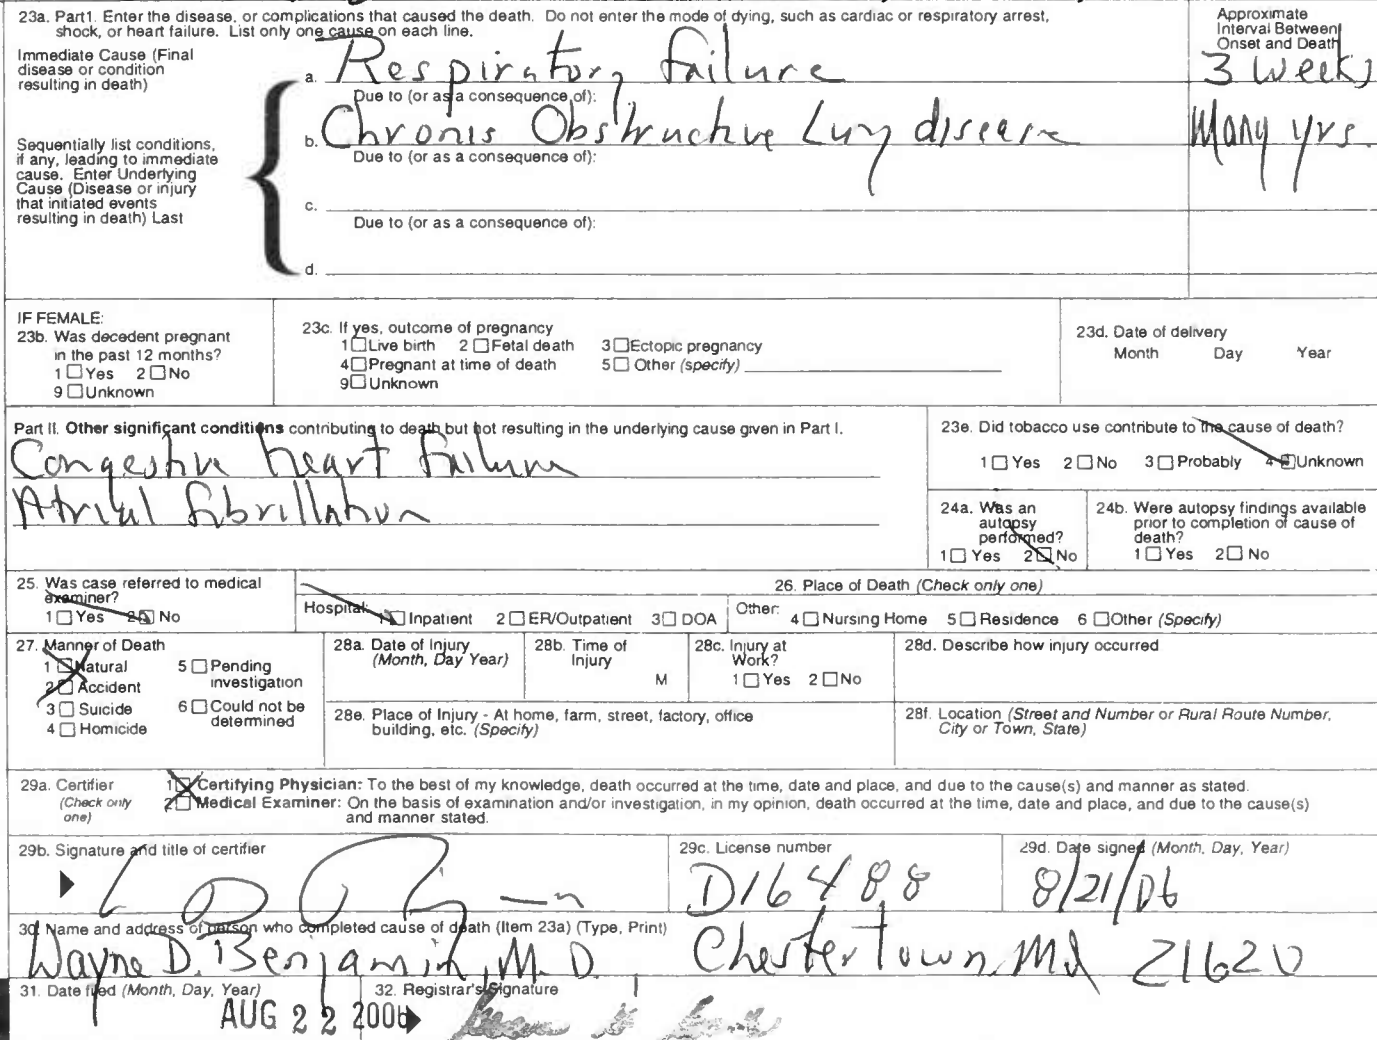 23a. Part1. Enter the disease, or complications that caused the death. Do not enter the mode of dying, such as cardiac or respiratory arrest,
shock, or heart failure. List only one cause on each line.
Approximate
Interval Between
Onset and Death
Immediate Cause (Final
disease or condition
resulting in death)
a. Respiratory failure 3 weeks
Due to (or as a consequence of):
b. Chronis Obstructive Lung disease Many yrs.
Due to (or as a consequence of):
Sequentially list conditions,
if any, leading to immediate
cause. Enter Underlying
Cause (Disease or injury
that initiated events
resulting in death) Last
c.
Due to (or as a consequence of):
d.
IF FEMALE:
23b. Was decedent pregnant
in the past 12 months?
1 ☐ Yes 2 ☐ No
9 ☐ Unknown
23c. If yes, outcome of pregnancy
1 ☐ Live birth 2 ☐ Fetal death 3 ☐ Ectopic pregnancy
4 ☐ Pregnant at time of death 5 ☐ Other (specify)
9 ☐ Unknown
23d. Date of delivery
Month Day Year
Part II. Other significant conditions contributing to death but not resulting in the underlying cause given in Part I.
Congestive heart failure
Atrial fibrillation
23e. Did tobacco use contribute to the cause of death?
1 ☐ Yes 2 ☐ No 3 ☐ Probably 4 ☒ Unknown
24a. Was an
autopsy
performed?
1 ☐ Yes 2 ☒ No
24b. Were autopsy findings available
prior to completion of cause of
death?
1 ☐ Yes 2 ☐ No
25. Was case referred to medical
examiner?
1 ☐ Yes 2 ☒ No
26. Place of Death (Check only one)
Hospital: 1 ☒ Inpatient 2 ☐ ER/Outpatient 3 ☐ DOA Other: 4 ☐ Nursing Home 5 ☐ Residence 6 ☐ Other (Specify)
27. Manner of Death
1 ☒ Natural 5 ☐ Pending
investigation
2 ☐ Accident
3 ☐ Suicide 6 ☐ Could not be
determined
4 ☐ Homicide
28a. Date of Injury
(Month, Day Year)
28b. Time of
Injury
M
28c. Injury at
Work?
1 ☐ Yes 2 ☐ No
28d. Describe how injury occurred
28e. Place of Injury - At home, farm, street, factory, office
building, etc. (Specify)
28f. Location (Street and Number or Rural Route Number,
City or Town, State)
29a. Certifier
(Check only
one)
1 ☒ Certifying Physician: To the best of my knowledge, death occurred at the time, date and place, and due to the cause(s) and manner as stated.
2 ☐ Medical Examiner: On the basis of examination and/or investigation, in my opinion, death occurred at the time, date and place, and due to the cause(s)
and manner stated.
29b. Signature and title of certifier
29c. License number
D16488
29d. Date signed (Month, Day, Year)
8/21/06
30. Name and address of person who completed cause of death (Item 23a) (Type, Print)
Wayne D. Benjamin, M.D. Chestertown, Md 21620
31. Date filed (Month, Day, Year)
AUG 22 2006
32. Registrar's Signature